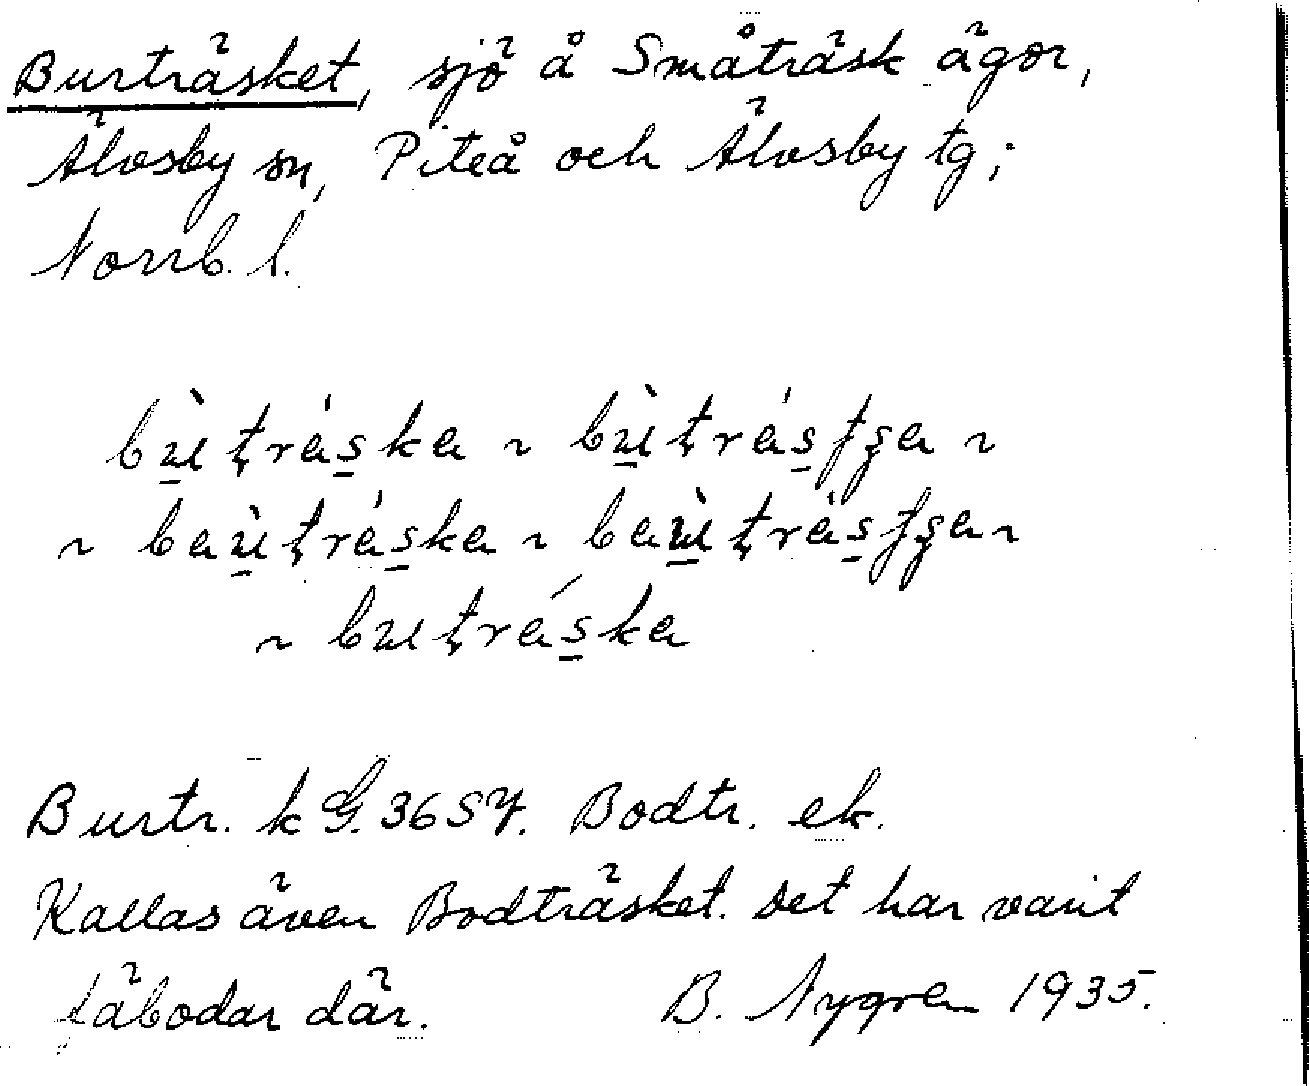 Burträsket, sjö å Småträsk ägor,
Älvsby sn, Piteå och Älvsby tg;
Norrb. l.
bù̠ţrás̠ka ~ bù̠ţrás̠ʃʒa ~
~ baù̠ţrás̠ka ~ baù̠ţrás̠ʃʒa ~
~ buţrás̠ka
Burtr. k G. 3657. Bodtr. ek.
Kallas även Bodträsket. Det har varit
fäbodar där. B. Nygren 1935.